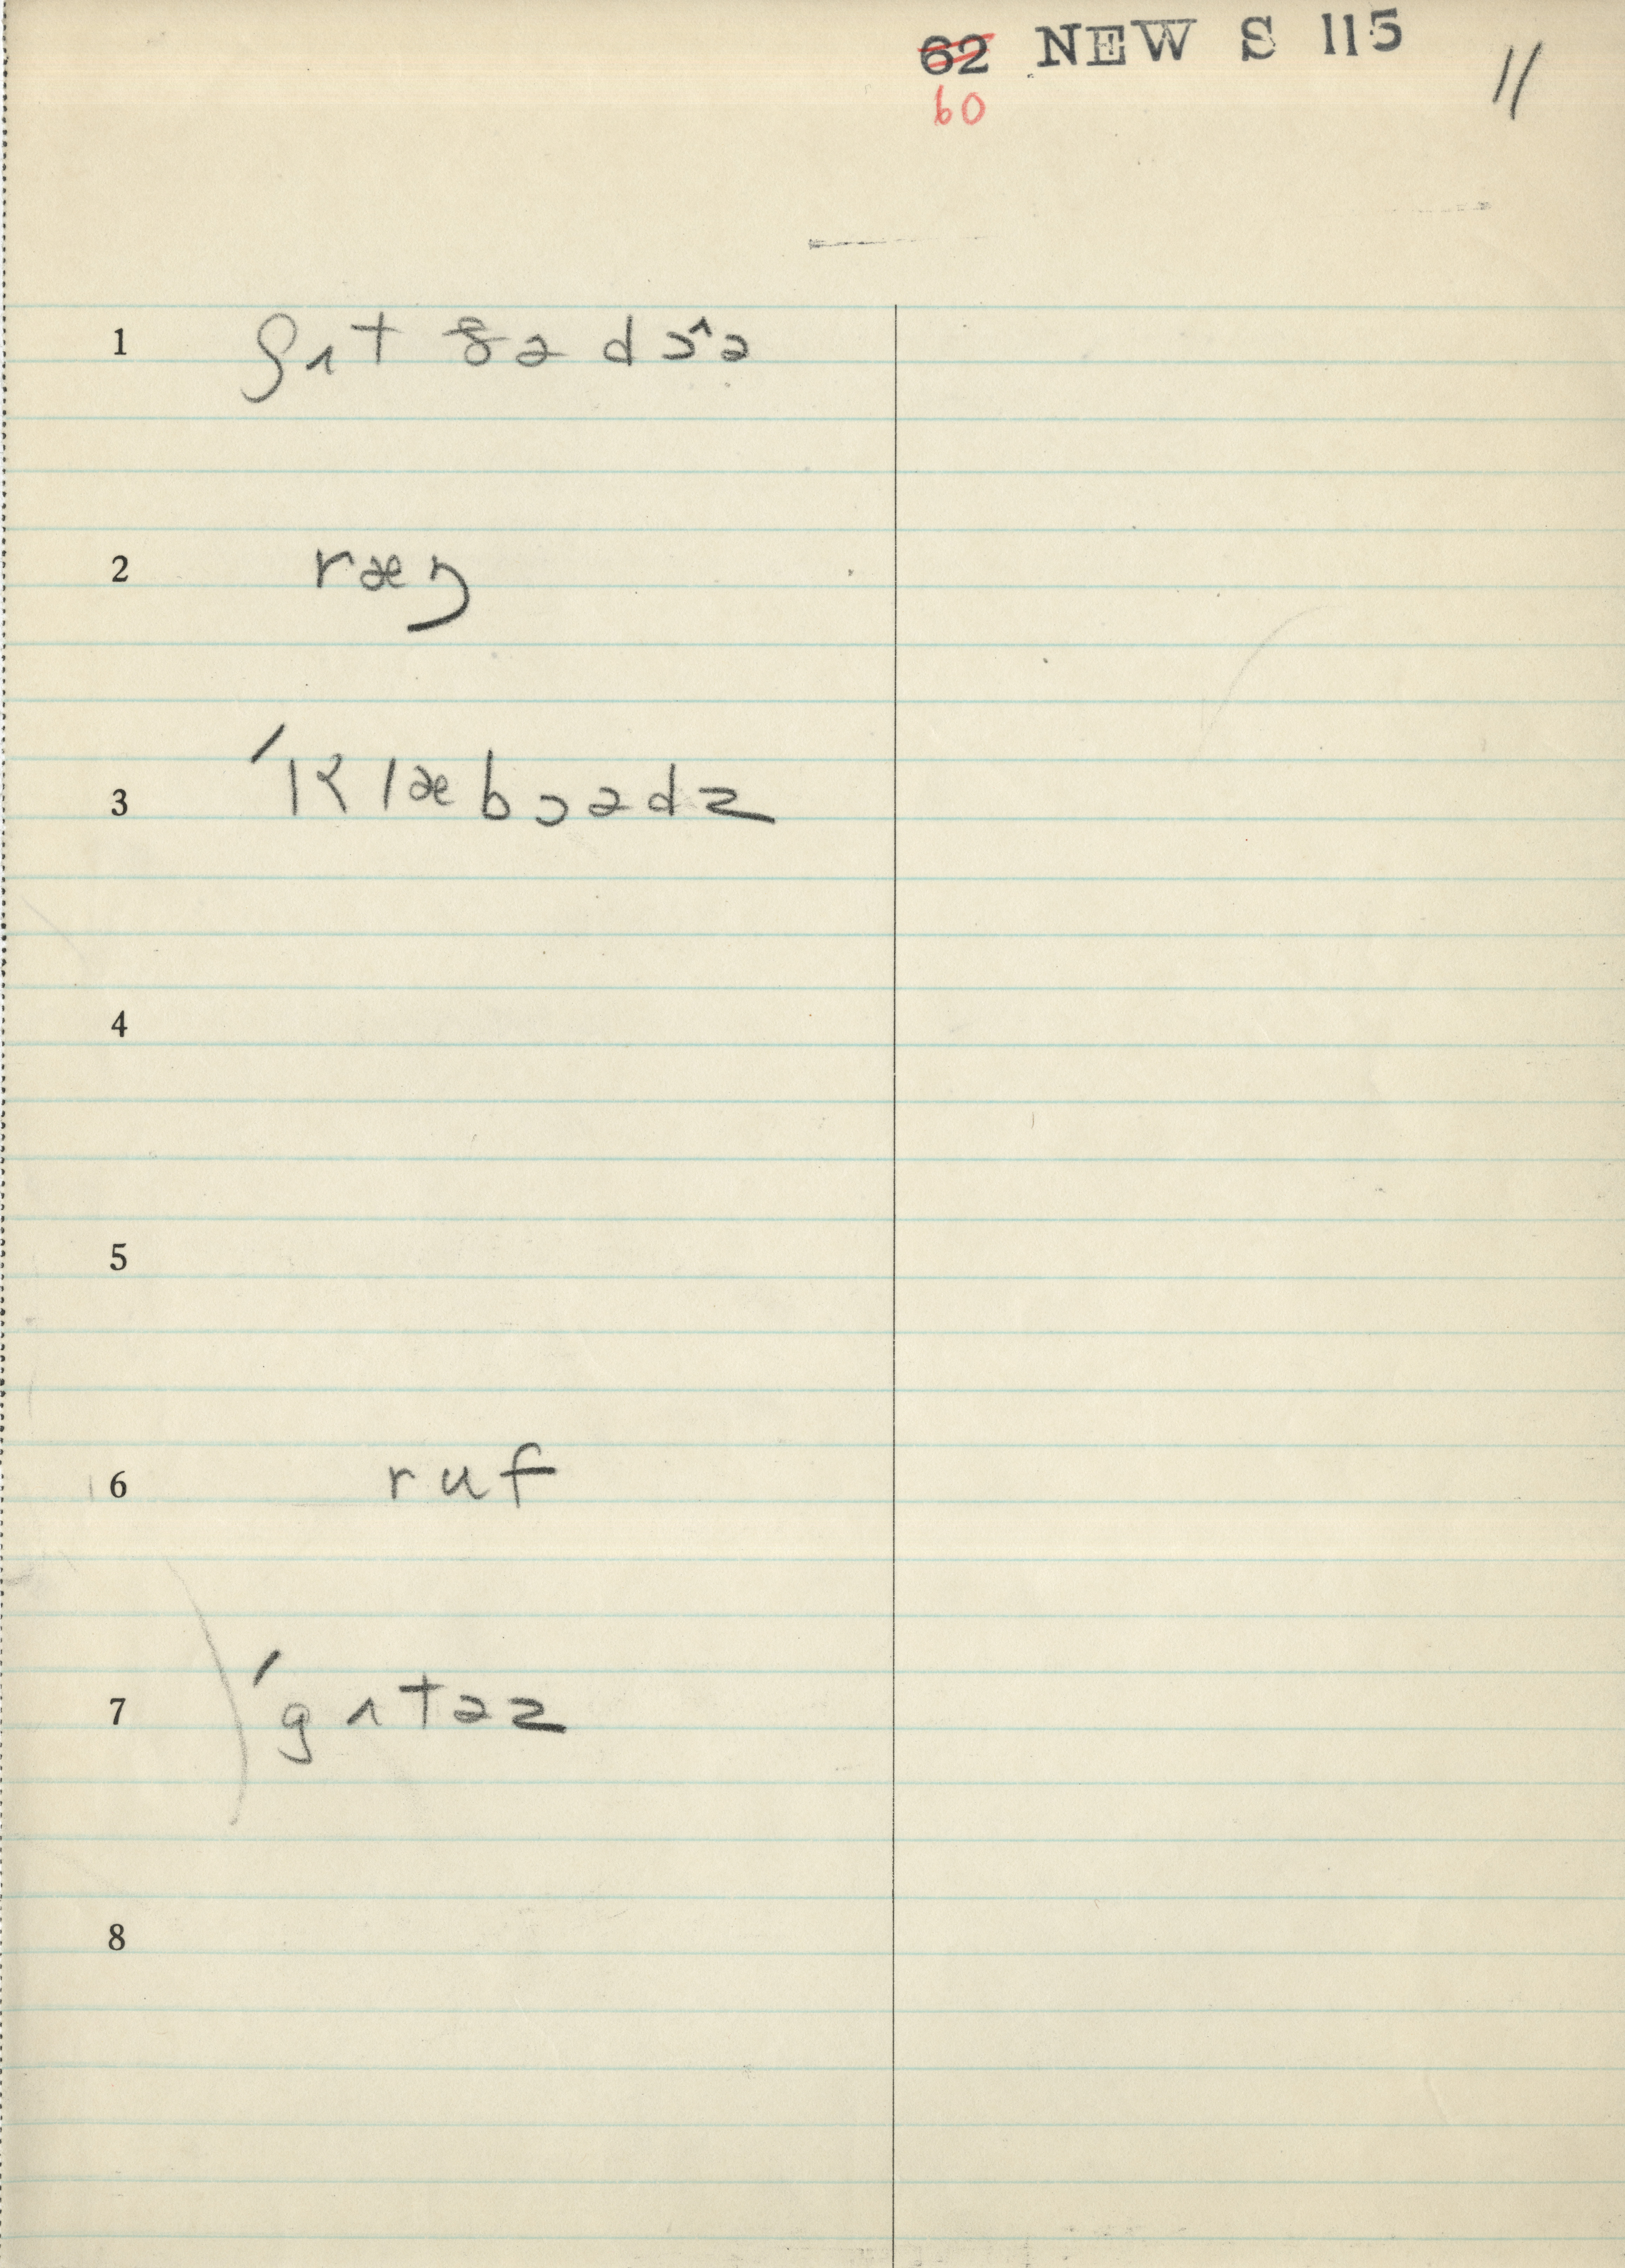 62 NEW S 115 11
60
1 ʃʌt ðə dɔ^ə
2 ræŋ
3 ˈklæbɔədz
4
5
6 ruf
7 ˈgʌtəz
8